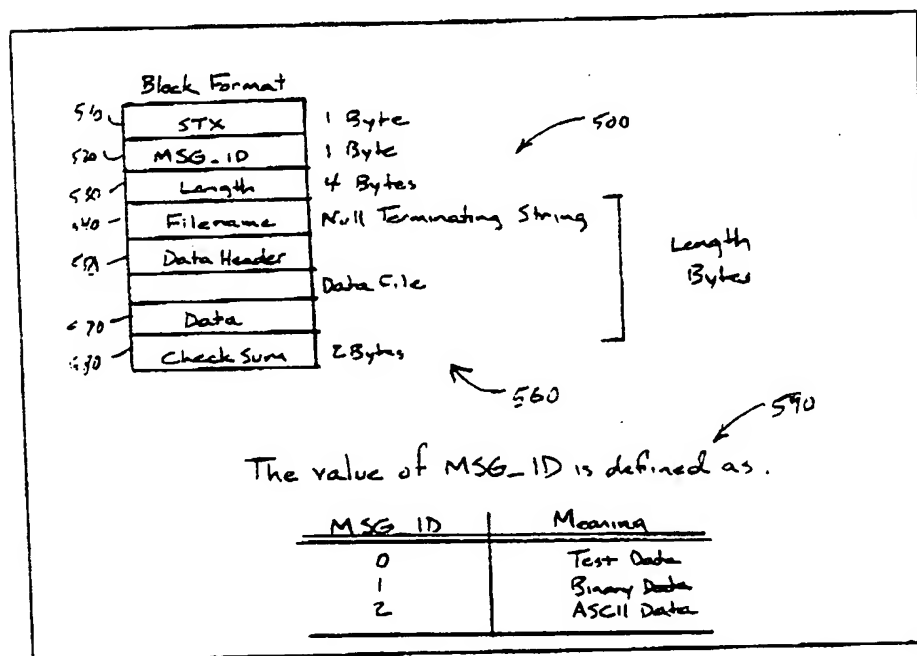 Block Format
510 STX 1 Byte
520 MSG_ID 1 Byte 500
530 Length 4 Bytes
540 Filename Null Terminating String
Data Header
Length
Bytes
Data File
570 Data
580 CheckSum 2 Bytes
560
590
The value of MSG_ID is defined as.
MSG_ID Meaning
0 Test Data
1 Binary Data
2 ASCII Data